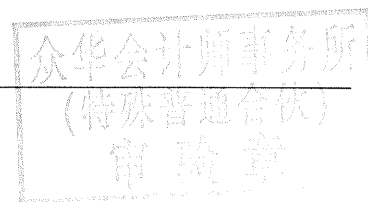 众华会计师事务所
(特殊普通合伙)
审 骑 章